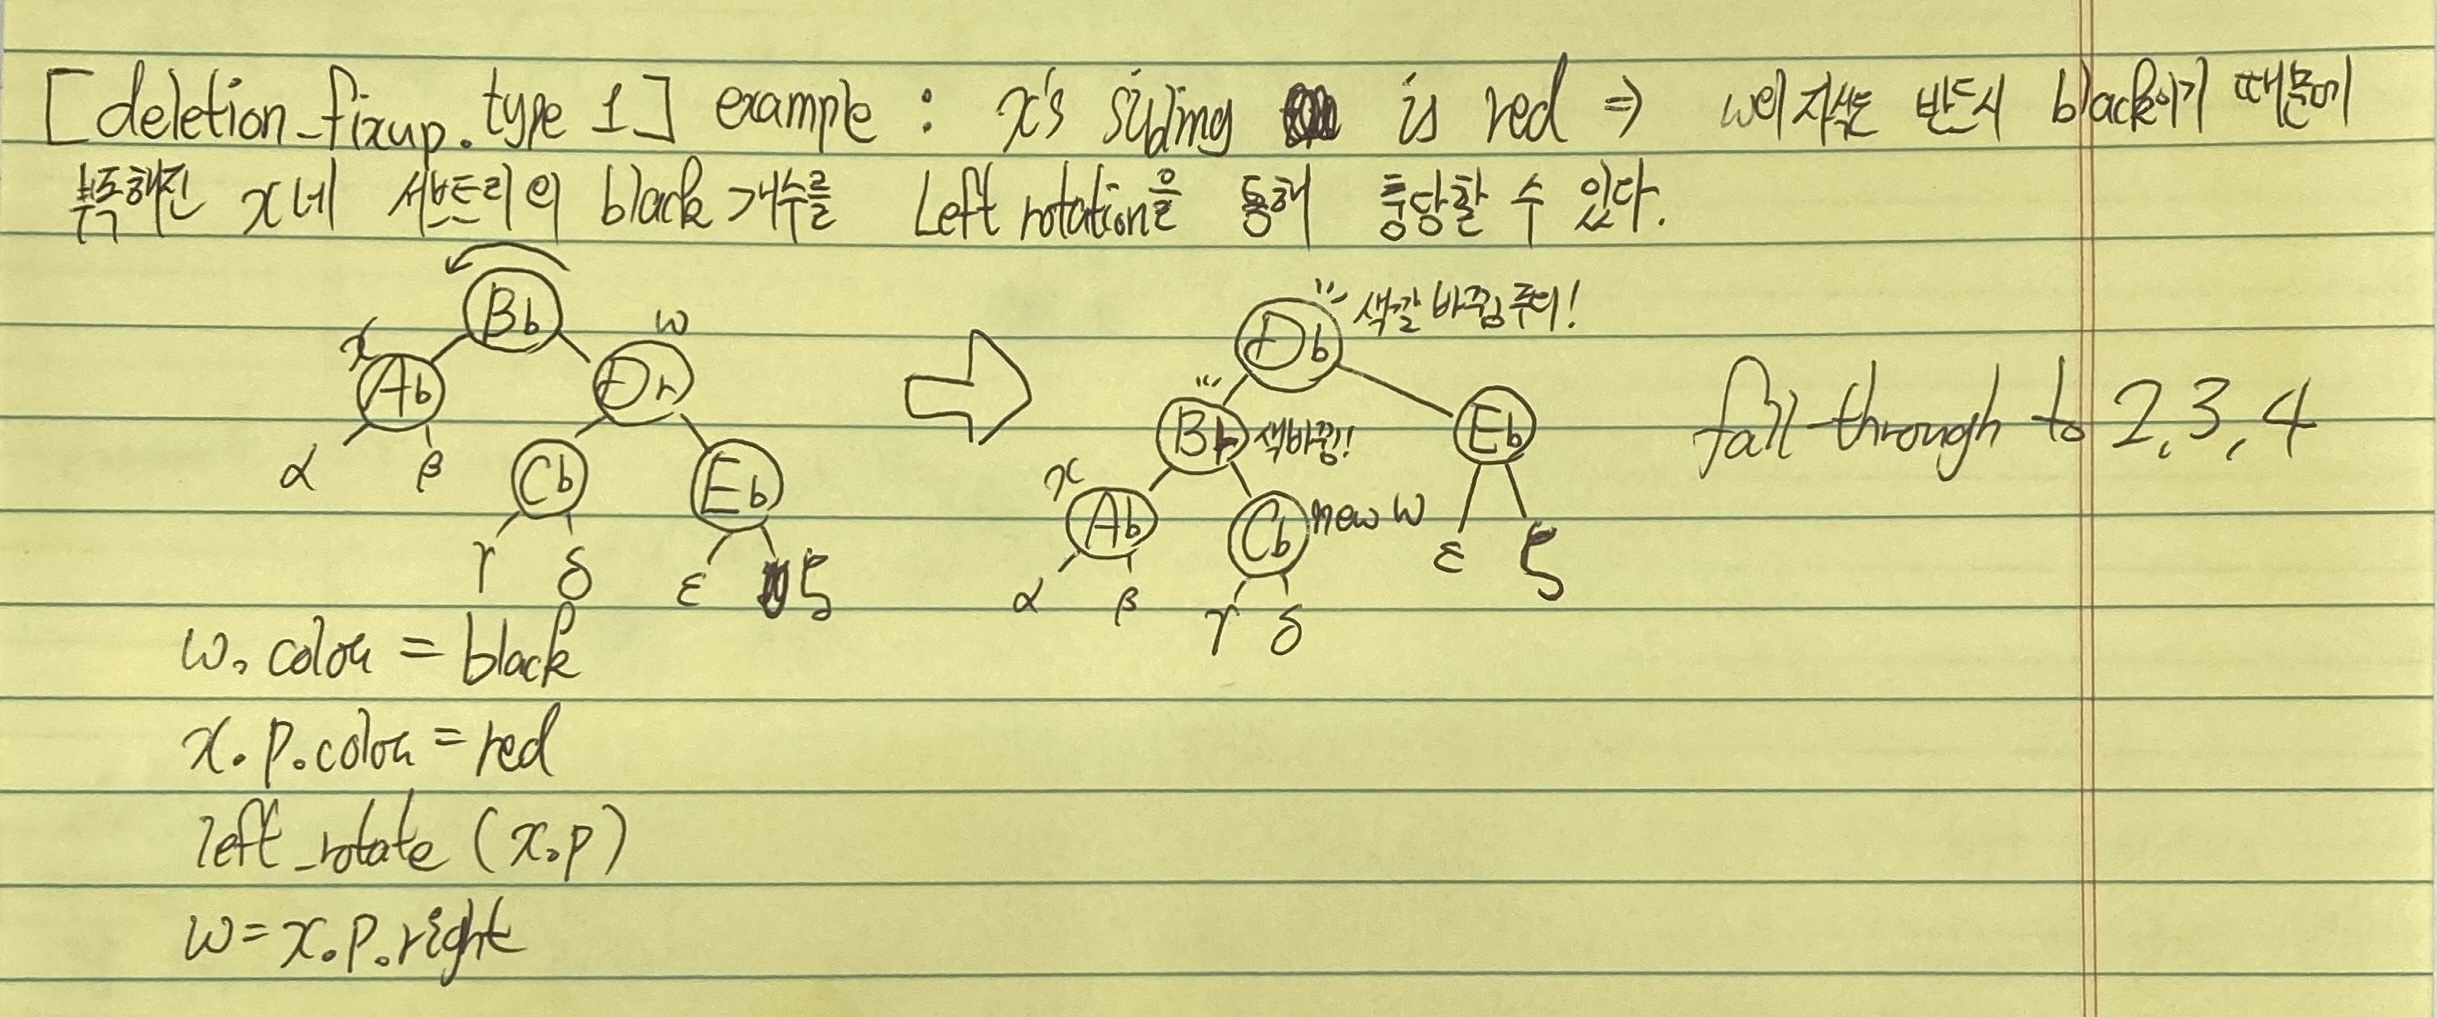 [deletion_fixup.type 1] example : x's sibling is red ⇒ w의 자식은 반드시 black이기 때문에
부족해진 x네 서브트리의 black 개수를 Left rotation을 통해 충당할 수 있다.
Bb
x
w
Ab
Dr
α
β
Cb
Eb
γ
δ
ε
ζ
Db
색깔 바뀜 주의!
Br
색바뀜!
Eb
x
Ab
Cb
new w
ε
ζ
α
β
γ
δ
fall through to 2, 3, 4
w.color = black
x.p.color = red
left_rotate (x.p)
w = x.p.right